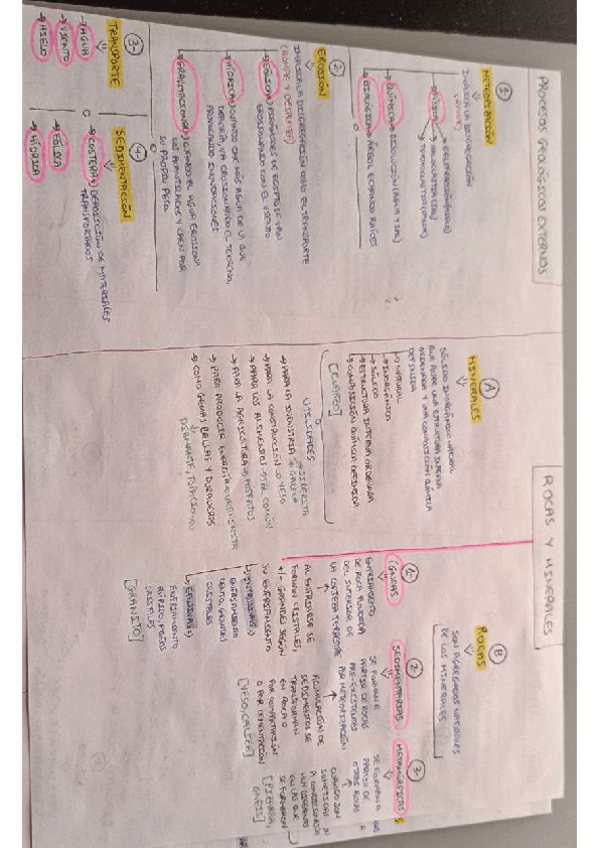 PROCESOS GEOLÓGICOS EXTERNOS
1)
METEORIZACIÓN
IMPLICA LA DISGREGACIÓN
(ROMPE)
→ FÍSICA
→ GELIFRACCIÓN (HIELO)
→ HALOCLASTIA (SAL)
→ TERMOCLASTIA
→ QUÍMICA → DISOLUCIÓN (AGUA Y SAL)
→ BIOLÓGICA → ÁRBOL ECHANDO RAÍCES
2)
EROSIÓN
IMPLICA LA DISGREGACIÓN COMO EL TRANSPORTE
(ROMPE Y DESPLAZA)
→ EÓLICA → PIRÁMIDES DE EGIPTO SE VAN
EROSIONANDO CON EL VIENTO
→ HÍDRICA → CUANDO CAE MÁS AGUA DE LA QUE
DEBERÍA, VA EROSIONANDO EL TERRENO,
PROVOCANDO INUNDACIONES
→ GRAVITACIONAL → CUANDO EL AGUA EROSIONA
LOS ACANTILADOS Y CAEN POR
SU PROPIO PESO.
3-
TRANSPORTE
→ AGUA
→ VIENTO
→ HIELO
4-
SEDIMENTACIÓN
→ COSTERA → DEPOSICIÓN DE MATERIALES
TRANSPORTADOS
→ EÓLICA
→ HÍDRICA
ROCAS Y MINERALES
A
MINERALES
SÓLIDO INORGÁNICO NATURAL
QUE POSEE UNA ESTRUCTURA INTERNA
ORDENADA Y UNA COMPOSICIÓN QUÍMICA
DEFINIDA
→ NATURAL
→ INORGÁNICO
→ SÓLIDO
→ ESTRUCTURA INTERNA ORDENADA
→ COMPOSICIÓN QUÍMICA DEFINIDA
[CUARZO]
UTILIDADES
→ PARA LA INDUSTRIA → SIDERITA
→ GALENA
→ PARA LA CONSTRUCCIÓN → YESO
→ PARA LOS ALIMENTOS → SAL COMÚN
→ PARA LA AGRICULTURA → FOSFATOS
→ PARA PRODUCIR ENERGÍA → URANINITA
→ COMO GEMAS BELLAS Y DURADERAS
DIAMANTE, TOPACIO
B
ROCAS
SON AGREGADOS NATURALES
DE LOS MINERALES
1-
ÍGNEAS
ENFRIAMIENTO
DE ROCA FUNDIDA
DEL INTERIOR DE
LA CORTEZA TERRESTRE
AL ENFRIARSE SE
FORMAN CRISTALES,
+/- GRANDES SEGÚN
SU ENFRIAMIENTO
→ INTRUSIVAS →
ENFRIAMIENTO
LENTO, GRANDES
CRISTALES
→ EFUSIVAS →
ENFRIAMIENTO
RÁPIDO, PEQUEÑOS
CRISTALES
[GRANITO]
2-
SEDIMENTARIAS
SE FORMAN A
PARTIR DE ROCAS
PREEXISTENTES
POR METEORIZACIÓN
ACUMULACIÓN DE
SEDIMENTOS SE
TRANSFORMAN
EN ROCA O
POR COMPACTACIÓN
O POR CEMENTACIÓN
[YESO, CALIZA]
3-
METAMÓRFICAS
SE FORMAN A
PARTIR DE
OTRAS ROCAS
CUANDO SON
SOMETIDAS A
CONDICIONES
MUY DIFERENTES
EN LAS QUE
SE FORMARON
[PIZARRA,
GNEIS]